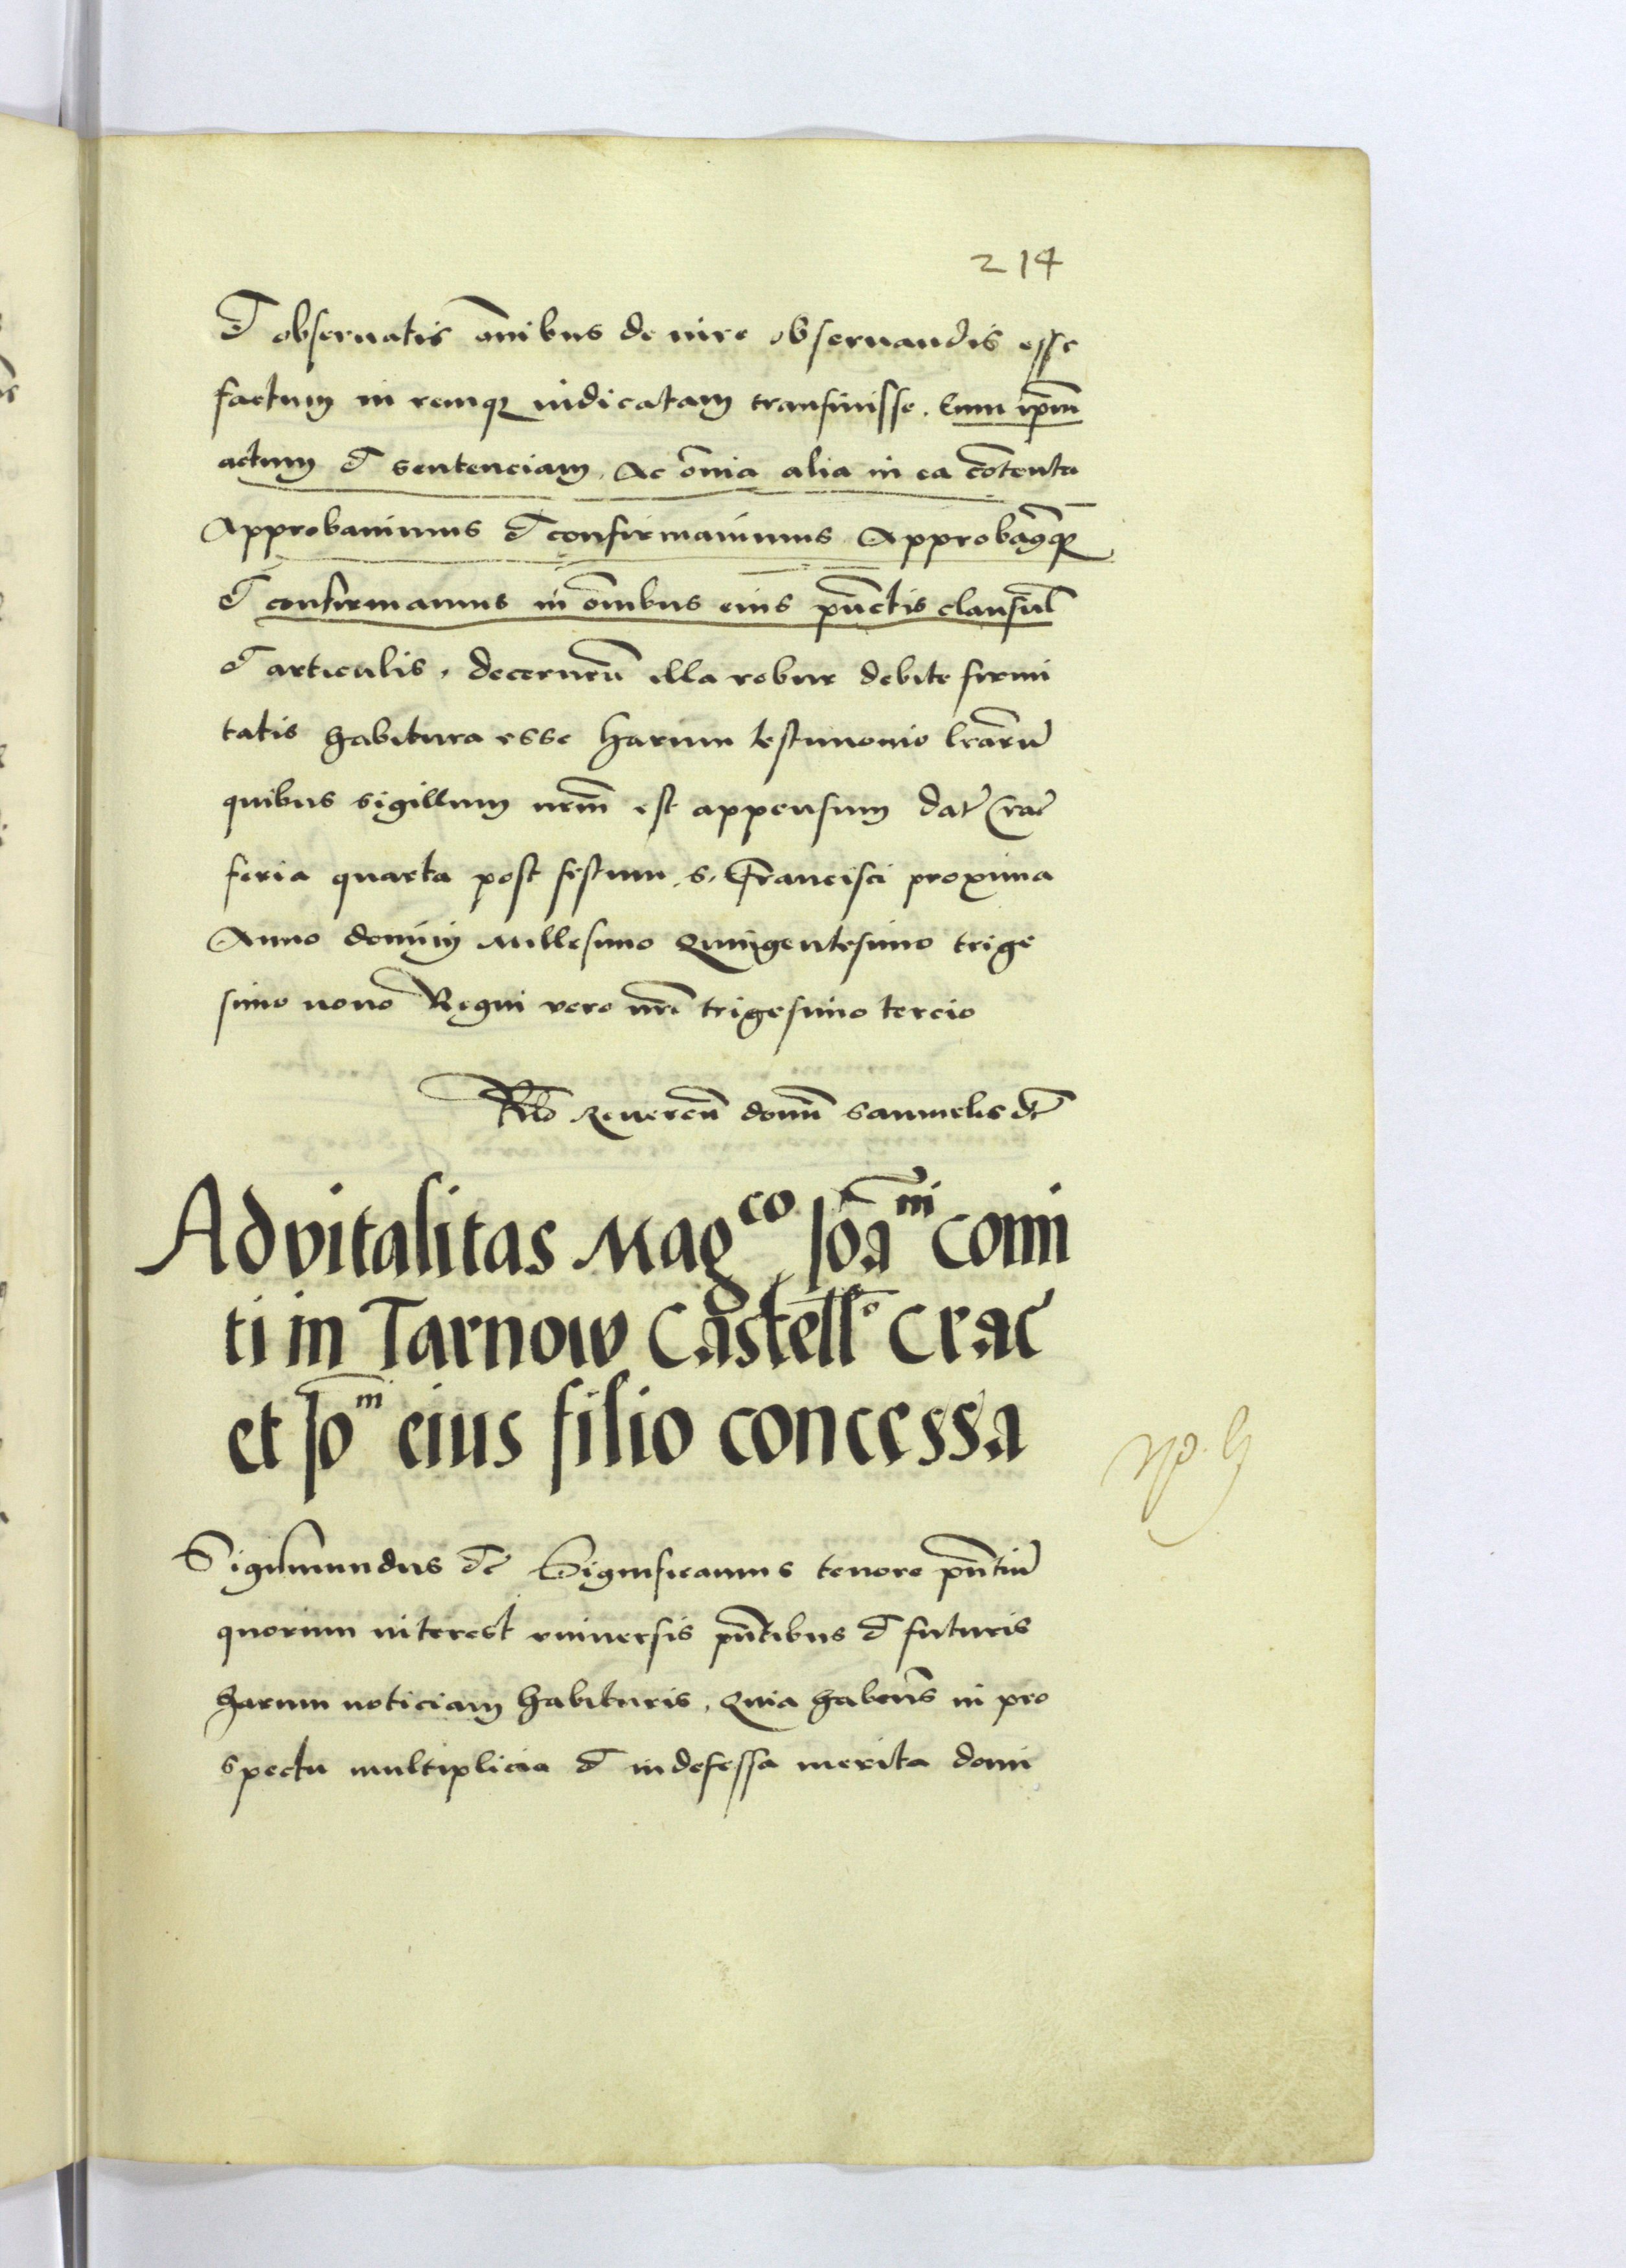 214
Et obseruatis oīnibus de iure obseruandis esse
factum in remq̨ iudicatam transiuisse. Eum ip̄m
actum et sentenciam, Ac oīnia alia in ea cōtenta
Approbauimus et confirmauimus Approbamq̨
et confirmamus in oīnibus eius pūctis clausul̄
et articulis, decerneñ illa robur debite firmi
tatis habitura esse harum testimonio l̄rarū
quibus sigillum nr̄m est appensum dat̄ Crac̄
feria quarta post festum .s. Francisci proxima
Anno dominj Millesimo Quingentesimo trige
simo nono Regni vero nr̄i trigesimo tercio
Rłō Reuereñ domī Samuelis etc̄
Advitalitas Mag^co Joā^ni comi
ti in Tarnow Castell^o Crac̄
et Jo^ni eius filio concessa
Sigismundus etc̄ Significamus tenore pn̄tiū
quorum interest vniuersis pn̄tibus et futuris
harum noticiam habituris, Quia habeñs in pro
spectu multiplicia et indefessa merita domi